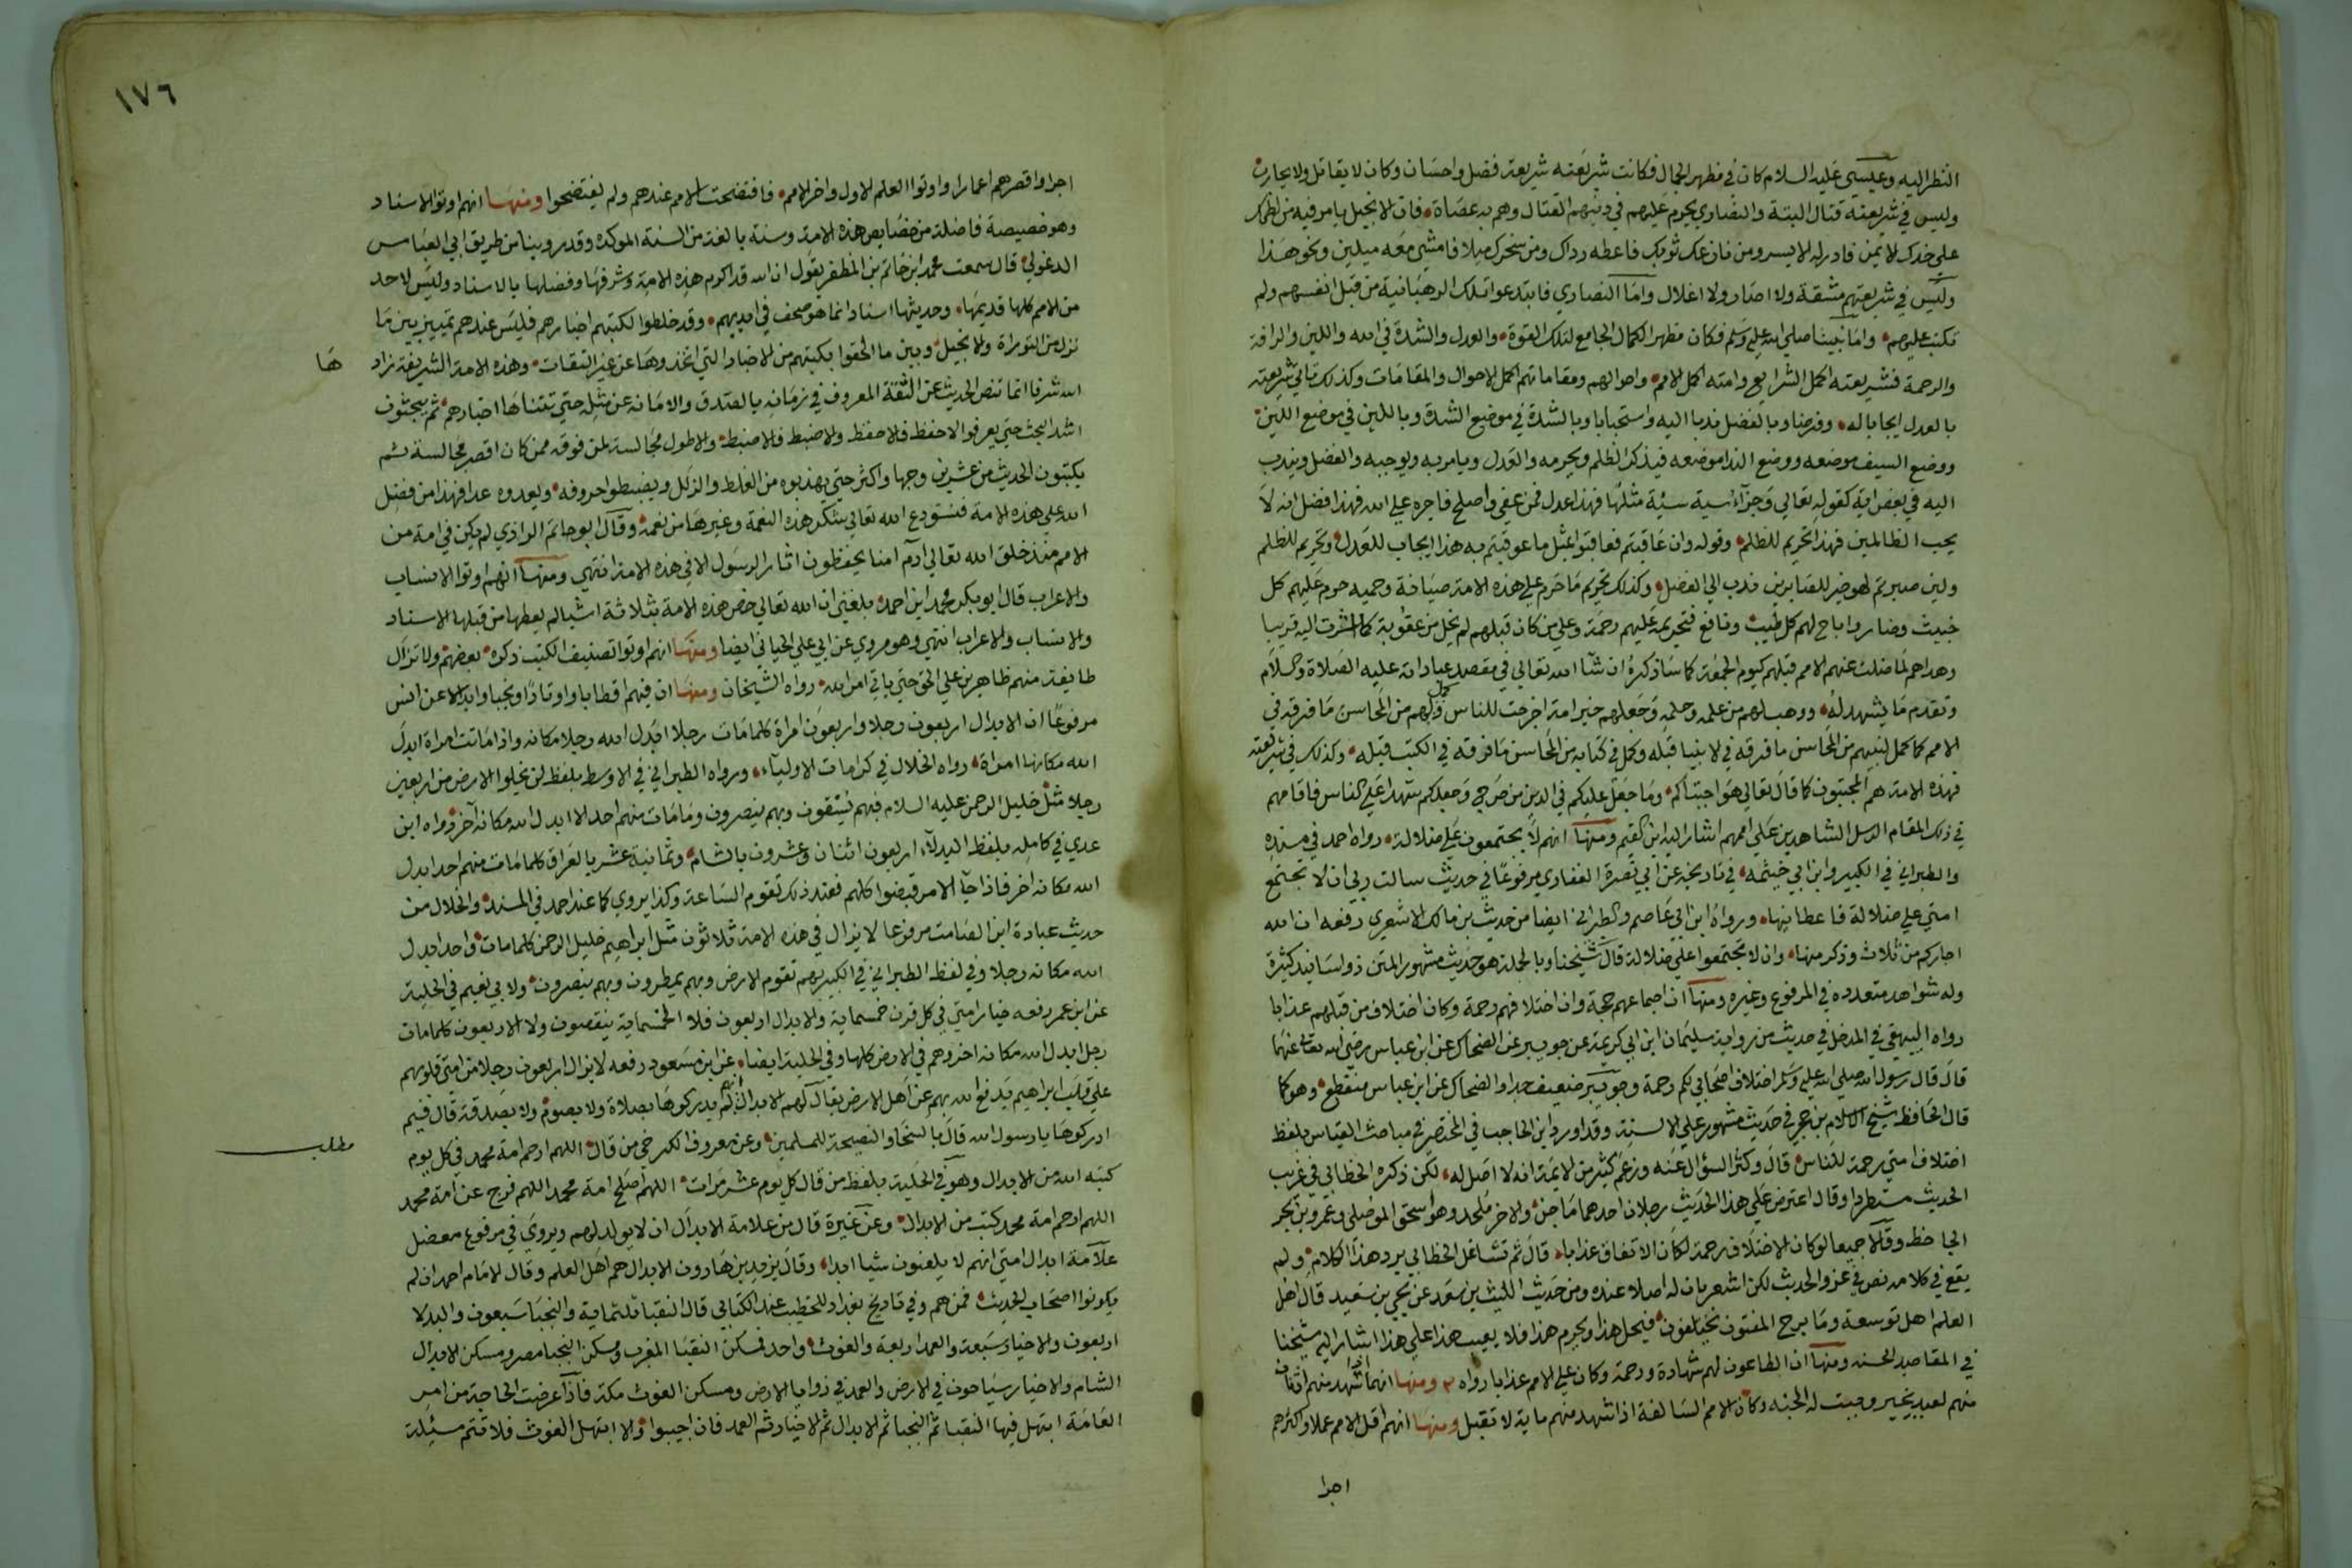 النظر اليه وعيسى عليه السلام كان في مظهر الجمال فكانت شريعته شريعة فضل واحسان وكان لا يقاتل ولا يحارب
وليس في شريعته قتال البتة والنصاري يحرم عليهم في دينهم القتال وهم به عصاة فان الانجيل يامر فيه من لطمك
علي خدك الايمن فادر له الايسر ومن نازعك ثوبك فاعطه رداك ومن سخرك ميلا فامش معه ميلين ونحو هذا
وليس في شريعتهم مشقة ولا اصار ولا اغلال واما النصاري فابتدعوا تلك الرهبانية من قبل انفسهم ولم
تكتب عليهم واما نبينا صلي الله عليه وسلم فكان مظهر الكمال الجامع لتلك القوة والعدل والشدة في الله واللين والرافة
والرحمة فشريعته اكمل الشرايع وامته اكمل الامم واحوالهم ومقاماتهم اكمل الاحوال والمقامات وكذلك تاتي شريعته
بالعدل ايجابا له وفرضا وبالفضل ندبا اليه واستحبابا وبالشدة في موضع الشدة وباللين في موضع اللين
ووضع السيف موضعه ووضع الندا موضعه فيذكر الظلم ويحرمه والعدل ويامر به ويوجبه والفضل ويندب
اليه في بعض اية كقوله تعالي وجزاء سيية سيئة مثلها فهذا عدل فمن عفي واصلح فاجره علي الله فهذا فضل انه لا
يحب الظالمين فهذا تحريم للظلم وقوله وان عاقبتم فعاقبوا بمثل ما عوقبتم به هذا ايجاب للعدل وتحريم للظلم
ولين صبرتم لهو خير للصابرين ندب الي الفضل وكذلك تحريم ما حرم علي هذه الامة صيانة وحميه حرم عليهم كل
خبيث وضار واباح لهم كل طيب ونافع فتحريمه عليهم رحمة وعلي من كان قبلهم لم يخل من عقوبة كما اشرت اليه قريبا
وهداهم لما ضلت عنهم الامم قبلهم كيوم الجمعة كما ساذكره ان شآ الله تعالي في مقصد عباداته عليه الصلاة والسلام
وتقدم ما يشهد له ووهب لهم من علمه وحلمه وجعلهم خير امة اخرجت للناس وكمل لهم من المحاسن ما فرقه في
الامم كما كمل لنبيهم من المحاسن ما فرقه في الانبيا قبله وكمل في كتابه من المحاسن ما فرقه في الكتب قبله وكذلك في شريعته
فهذه الامة هم المجتبون كما قال تعالي هو اجتباكم وما جعل عليكم في الدين من حرج وجعلكم شهدا علي الناس فاقامهم
في ذلك المقام الرسل الشاهدين علي اممهم اشار اليه ابن القيم ومنها انهم لا يجتمعون علي ضلالة رواه احمد في مسنده
والطبراني في الكبير وابن ابي خيثمه في تاريخه عن ابي نصرة الغفاري مرفوعا في حديث سالت ربي ان لا تجتمع
امتي علي ضلالة فاعطانيها ورواه ابن ابي عاصم والطبراني ايضا من حديث بن مالك الاشعري رفعه ان الله
اجاركم من ثلاث وذكر منها وان لا تجتمعوا علي ضلالة قال شيخنا وبالجملة هو حديث مشهور المتن ذو اسانيد كثيرة
وله شواهد متعدده في المرفوع وغيره ومنها ان اجماعهم حجة وان اختلافهم رحمة وكان اختلاف من قبلهم عذابا
رواه البيهقي في المدخل في حديث من رواية سليمان ابن ابي كريمة عن جويبر عن الضحاك عن ابن عباس رضي الله تعالي عنهما
قال قال رسول الله صلي الله عليه وسلم اختلاف اصحابي لكم رحمة وجويبر ضعيف جدا والضحاك عن ابن عباس منقطع وهو كما
قال الحافظ شيخ الاسلام بن حجر في حديث مشهور علي الالسنة وقد اورده ابن الحاجب في المختصر في مباحث القياس بلفظ
اختلاف امتي رحمة للناس قال وكثر السؤال عنه وزعم كثير من الايمة انه لا اصل له لكن ذكره الخطابي في غريب
الحديث مستطردا وقال اعترض علي هذا الحديث رجلان احدهما ماجن والاخر ملحد وهو اسحق الموصلي وعمرو بن بحر
الجاحظ وقالا جميعا لو كان الاختلاف رحمة لكان الاتفاق عذابا قال ثم تشاغل الخطابي برد هذا الكلام ولم
يقع في كلامه نص في عزو الحديث لكن اشعر بان له اصلا عنده ومن حديث الليث بن سعد عن يحيي بن سعيد قال اهل
العلم اهل توسعة وما برح المفتون يختلفون فيحل هذا ويحرم هذا فلا يعيب هذا علي هذا اشار اليه شيخنا
في المقاصد الحسنه ومنها ان الطاعون لهم شهادة ورحمة وكان علي الامم عذابا رواه ومنها انهم اذا شهد منهم اثنان
منهم لعبد بخير وجبت له الجنه وكان الامم السالفة اذا شهد منهم ماية لا تقبل ومنها انهم اقل الامم عملا واكثرهم
اجرا
١٧٦
اجرا واقصرهم اعمارا واوتوا العلم الاول والاخر الامم فافتضحت الامم عندهم ولم يفتضحوا ومنها انهم اوتوا الاسناد
وهو خصيصة فاضلة من خصايص هذه الامة وسنة بالغة من السنة الموكده وقد روينا من طريق ابي العباس
الدغولي قال سمعت محمد ابن حاتم بن المظفر يقول ان الله قد اكرم هذه الامة وشرفها وفضلها بالاسناد وليس لاحد
من الامم كلها قديمها وحديثها اسناد انما هو صحف في ايديهم وقد خلطوا لكتبهم اخبارهم فليس عندهم تمييز بين ما
نزل من التوراة والانجيل وبين ما الحقوا بكتبهم من الاخبار التي اتخذوها عن غير الثقات وهذه الامة الشريفة زاد
ها
الله شرفا انما تنص الحديث عن الثقة المعروف في زمانه بالصدق والامانة عن مثله حتي تتناها اخبارهم ثم يبحثون
اشد البحث حتي يعرفوا الاحفظ فالاحفظ والاضبط فالاضبط والاطول مجالسة لمن فوقه ممن كان اقصر مجالسة ثم
يكتبون الحديث من عشرين وجها واكثر حتي يهذبوه من الغلط والزلل ويضبطوا حروفه ويعدوه عدا فهذا من فضل
الله علي هذه الامة فنستودع الله تعالي شكر هذه النعمة وغيرها من نعمه وقال ابو حاتم الرازي لم يكن في امة من
الامم منذ خلق الله تعالي ادم امنا يحفظون اثار الرسول الا في هذه الامة انتهي ومنها انهم اوتوا الانساب
والاعراب قال ابو بكر محمد ابن احمد بلغني ان الله تعالي خص هذه الامة بثلاثة اشيا لم يعطها من قبلها الاسناد
والانساب والاعراب انتهي وهو مروي عن ابي علي الجياني ايضا ومنها انهم اوتوا تصنيف الكتب ذكره بعضهم ولا تزال
طايفة منهم ظاهرين علي الحق حتي ياتي امر الله رواه الشيخان ومنها ان فيهم اقطابا واوتادا ونجبا وابدالا عن انس
مرفوعا ان الابدال اربعون رجلا واربعون امراة كلما مات رجلا ابدل الله رجلا مكانه واذا ماتت امراة ابدل
الله مكانها امراة رواه الخلال في كرامات الاولياء ورواه الطبراني في الاوسط بلفظ لن يخلوا الارض من اربعين
رجلا مثل خليل الرحمن عليه السلام فبهم يسقون وبهم ينصرون وما مات منهم احد الا ابدل الله مكانه آخر ورواه ابن
عدي في كامله بلفظ البدلآء اربعون اثنان وعشرون بالشام وثمانية عشر بالعراق كلما مات منهم احد ابدل
الله مكانه اخر فاذا جآ الامر قبضوا كلهم فعند ذلك تقوم الساعة وكذا يروي كما عند احمد في المسند والخلال من
حديث عبادة ابن الصامت مرفوعا لا يزال في هذه الامة ثلاثون مثل ابراهيم خليل الرحمن كلما مات واحد ابدل
الله مكانه رجلا وفي لفظ الطبراني في الكبير بهم تقوم الارض وبهم يمطرون وبهم ينصرون ولابي نعيم في الحلية
عن ابن عمر رفعه خيار امتي في كل قرن خمسماية والابدال اربعون فلا الخمسماية ينقصون ولا الاربعون كلما مات
رجل ابدل الله مكانه اخر وهم في الارض كلها وفي الحلية ايضا عن ابن مسعود رفعه لا يزال اربعون رجلا من امتي قلوبهم
علي قلب ابراهيم يدفع الله بهم عن اهل الارض يقال لهم الابدال انهم لم يدركوها بصلاة ولا بصوم ولا بصدقة قال فبم
ادركوها يا رسول الله قال بالسخا والنصيحة للمسلمين وعن معروف الكرخي من قال اللهم ارحم امة محمد في كل يوم
مطلب
كتبه الله من الابدال وهو في الحلية بلفظ من قال كل يوم عشر مرات اللهم اصلح امة محمد اللهم فرج عن امة محمد
اللهم ارحم امة محمد كتب من الابدال وعن غيره قال من علامة الابدال ان لا يولد لهم ويروي في مرفوع معضل
علامة ابدال امتي انهم لا يلعنون شيا ابدا وقال يزيد بن هارون الابدال هم اهل العلم وقال الامام احمد ان لم
يكونوا اصحاب الحديث فمن هم وفي تاريخ بغداد للخطيب عند الكتاني قال النقبا ثلثماية والنجبا سبعون والبدلا
اربعون والاخيار سبعة والعمد اربعة والغوث واحد فمسكن النقبا المغرب ومسكن النجبا مصر ومسكن الابدال
الشام والاخيار سياحون في الارض والعمد في زوايا الارض ومسكن الغوث مكة فاذا عرضت الحاجة من امر
العامة ابتهل فيها النقبا ثم النجبا ثم الابدال ثم الاخيار ثم العمد فان اجيبوا والا ابتهل الغوث فلا تتم مسئلة